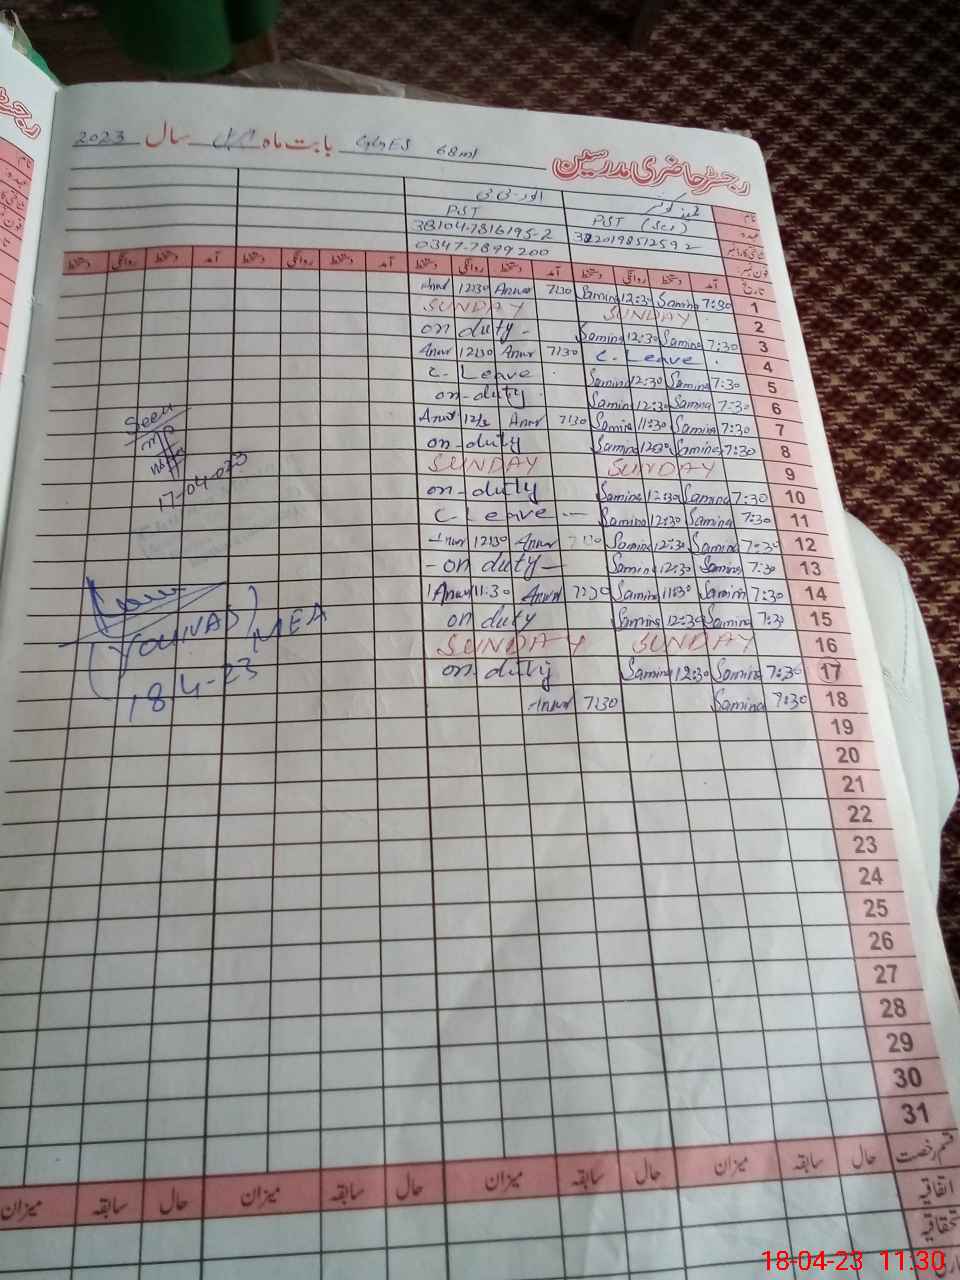 رجسٹر حاضری مدرسین بابت ماہ سال 2023
نام
عہدہ PST (Sci) PST
38104-7816195-2
0347-7899200
تاریخ آمد دستخط روانگی دستخط آمد دستخط روانگی دستخط آمد دستخط روانگی دستخط آمد دستخط روانگی دستخط
1 7:30 Samina 12:30 Samina 7:30 Anwr 12:30 Anwr
2 SUNDAY SUNDAY
3 7:30 Samina 12:30 Samina on duty
4 C. Leave 7:30 Anwr 12:30 Anwr
5 7:30 Samina 12:30 Samina C. Leave
6 7:30 Samina 12:30 Samina on-duty
7 7:30 Samina 11:30 Samina 7:30 Anwr Anwr
8 7:30 Samina 12:30 Samina on-duty
9 SUNDAY SUNDAY
10 7:30 Samina Samina on-duty
11 7:30 Samina 12:30 Samina C Leave
12 7:30 Samina 12:30 Samina 7:30 Anwr 12:30 Anwr
13 7:30 Samina 12:30 Samina - on duty -
14 7:30 Samina 11:30 Samina 7:30 Anwr 11:30 Anwr
15 7:30 Samina 12:30 Samina on duty
16 SUNDAY SUNDAY
17 7:30 Samina 12:30 Samina on-duty
18 7:30 Samina 7:30 Anwr
19
20
21
22
23
24
25
26
27
28
29
30
31
Seen
17-04-023
MEA
18-4-23
قسم رخصت حال سابقہ میزان حال سابقہ میزان حال سابقہ میزان حال سابقہ میزان
اتفاقیہ
18-04-23 11:30